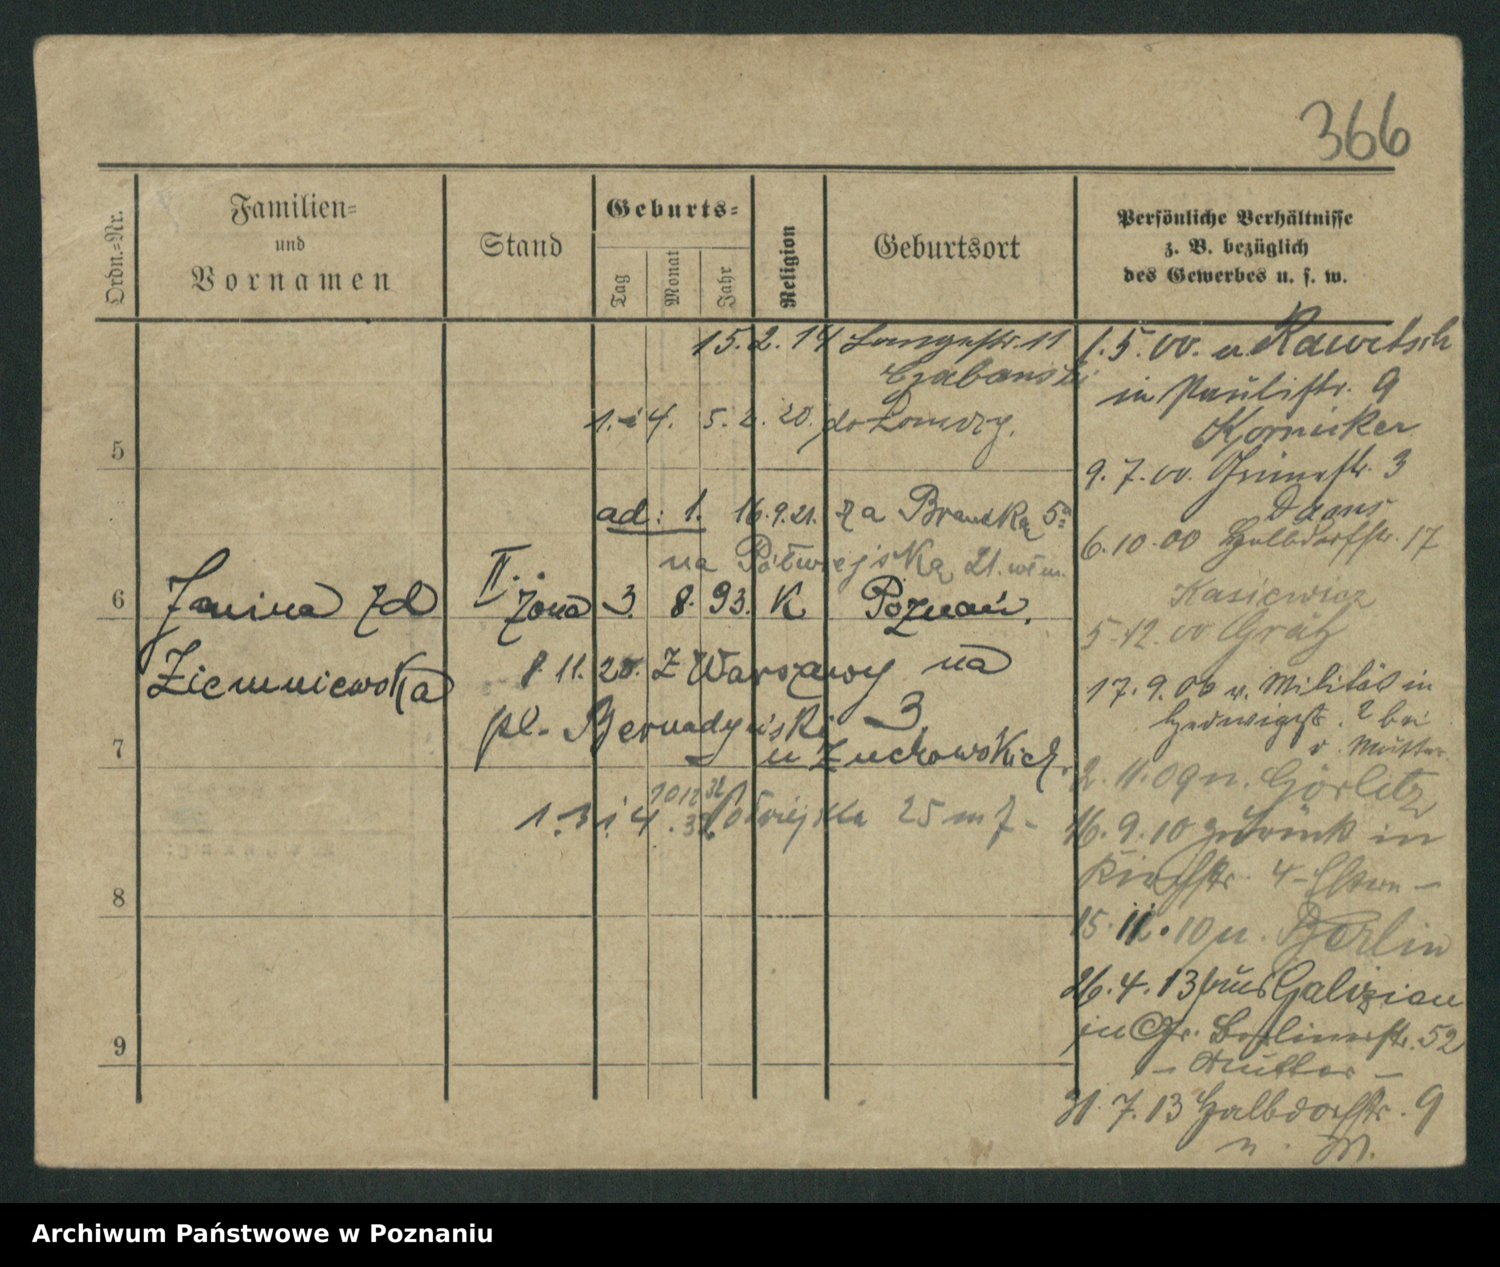 366
Ordn.-Nr.
Familien-
und
Vornamen
Stand
Geburts-
Tag
Monat
Jahr
Religion
Geburtsort
Persönliche Verhältnisse
z. B. bezüglich
des Gewerbes u. s. w.
15.2.14 Langestr. 11
5.2.20. do Łomży.
5
ad: 1. 16.9.21. za Bramką 5a
na Półwiejską 21.
6
Janina zd
Ziemniewska
II. żona 3. 8. 93. K Poznań.
8.11.20. z Warszawy na
pl. Bernadyński 3.
u Żuchowskich.
7
Półwiejska 25 m 7-
8
9
1.5.00. v. Rawitsch
in Paulistr. 9
Kornicker
9.7.00. 3
6.10.00 Halbdorfstr. 17
Kasiewicz
5.12.00 Grätz
17.9.09 v. Militär in
Hedwigstr. 2 bei
d. Mutter
2.11.09 n. Görlitz
16.9.10 zurück in
Kirchstr. 4 - Eltern -
15.11.10 n. Berlin
26.4.13 aus Galizien
in Gr. Berlinerstr. 52
- Mutter -
31.7.13 Halbdorfstr. 9
Archiwum Państwowe w Poznaniu